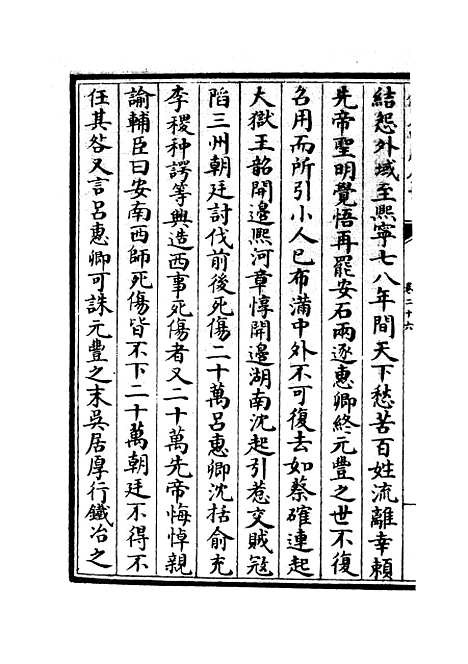 卷二十六
結怨外域至熙寧七八年間天下愁苦百姓流離幸賴
先帝聖明覺悟再罷安石兩逐惠卿終元豐之世不復
名用而所引小人已布滿中外不可復去如蔡確連起
大獄王韶開邊熙河章惇開邊湖南沈起引惹交賊冦
陷三州朝廷討伐前後死傷二十萬吕惠卿沈括俞充
李稷种諤等興造西事死傷者又二十萬先帝悔悼親
諭輔臣曰安南西師死傷皆不下二十萬朝廷不得不
任其咎又言吕惠卿可誅元豐之末吳居厚行鐵冶之